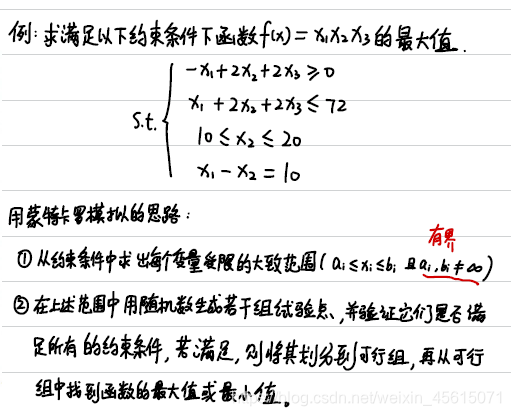 例:求满足以下约束条件下函数f(x)=x₁x₂x₃的最大值.
s.t. { -x₁+2x₂+2x₃≥0
x₁+2x₂+2x₃≤72
10≤x₂≤20
x₁-x₂=10
用蒙特卡罗模拟的思路:
有界
①从约束条件中求出每个变量受限的大致范围(aᵢ≤xᵢ≤bᵢ 且aᵢ,bᵢ≠∞)
②在上述范围中用随机数生成若干组试验点、并验证它们是否满
足所有的约束条件,若满足,则将其划分到可行组,再从可行
组中找到函数的最大值或最小值。
https://blog.csdn.net/weixin_45615071